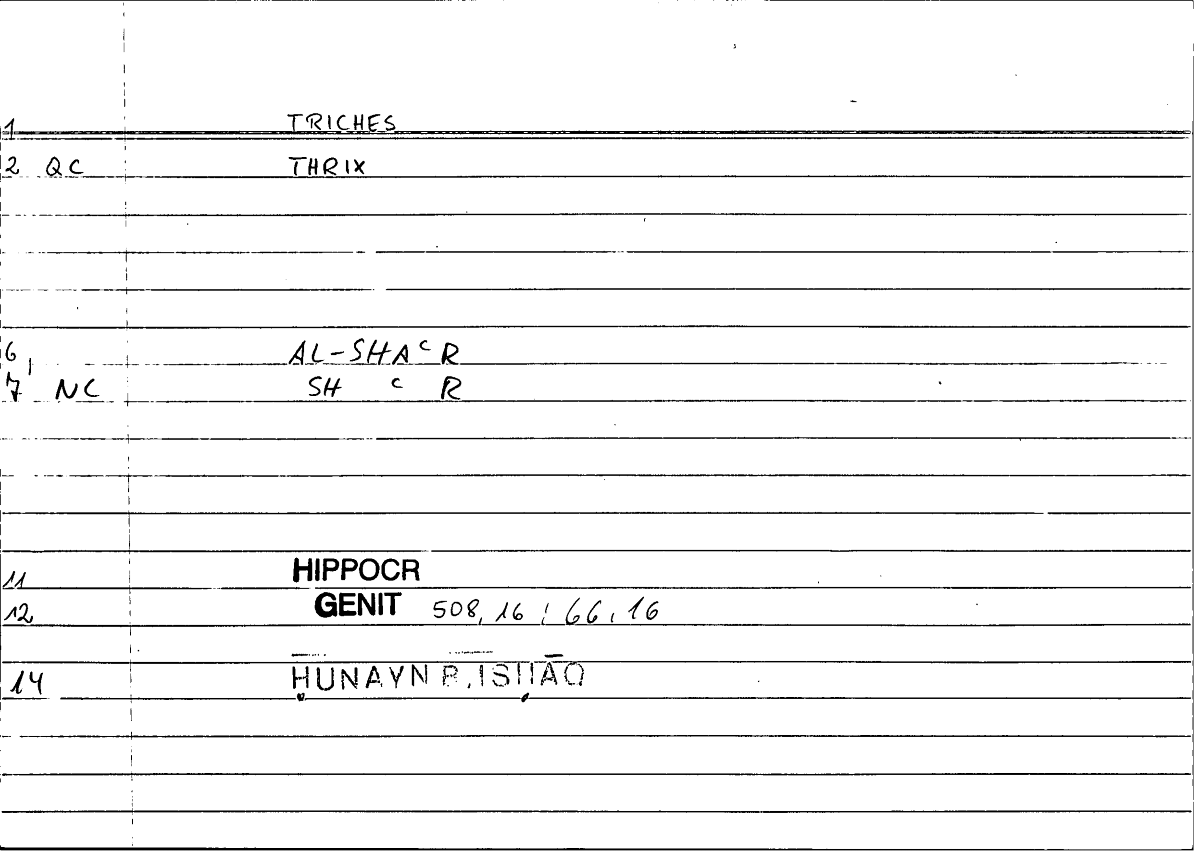 1 TRICHES
2 QC THRIX
6 AL-SHAᶜR
7 NC SH ᶜ R
11 HIPPOCR
12 GENIT 508, 16 ; 66, 16
14 ḤUNAYN B. ISḤĀQ